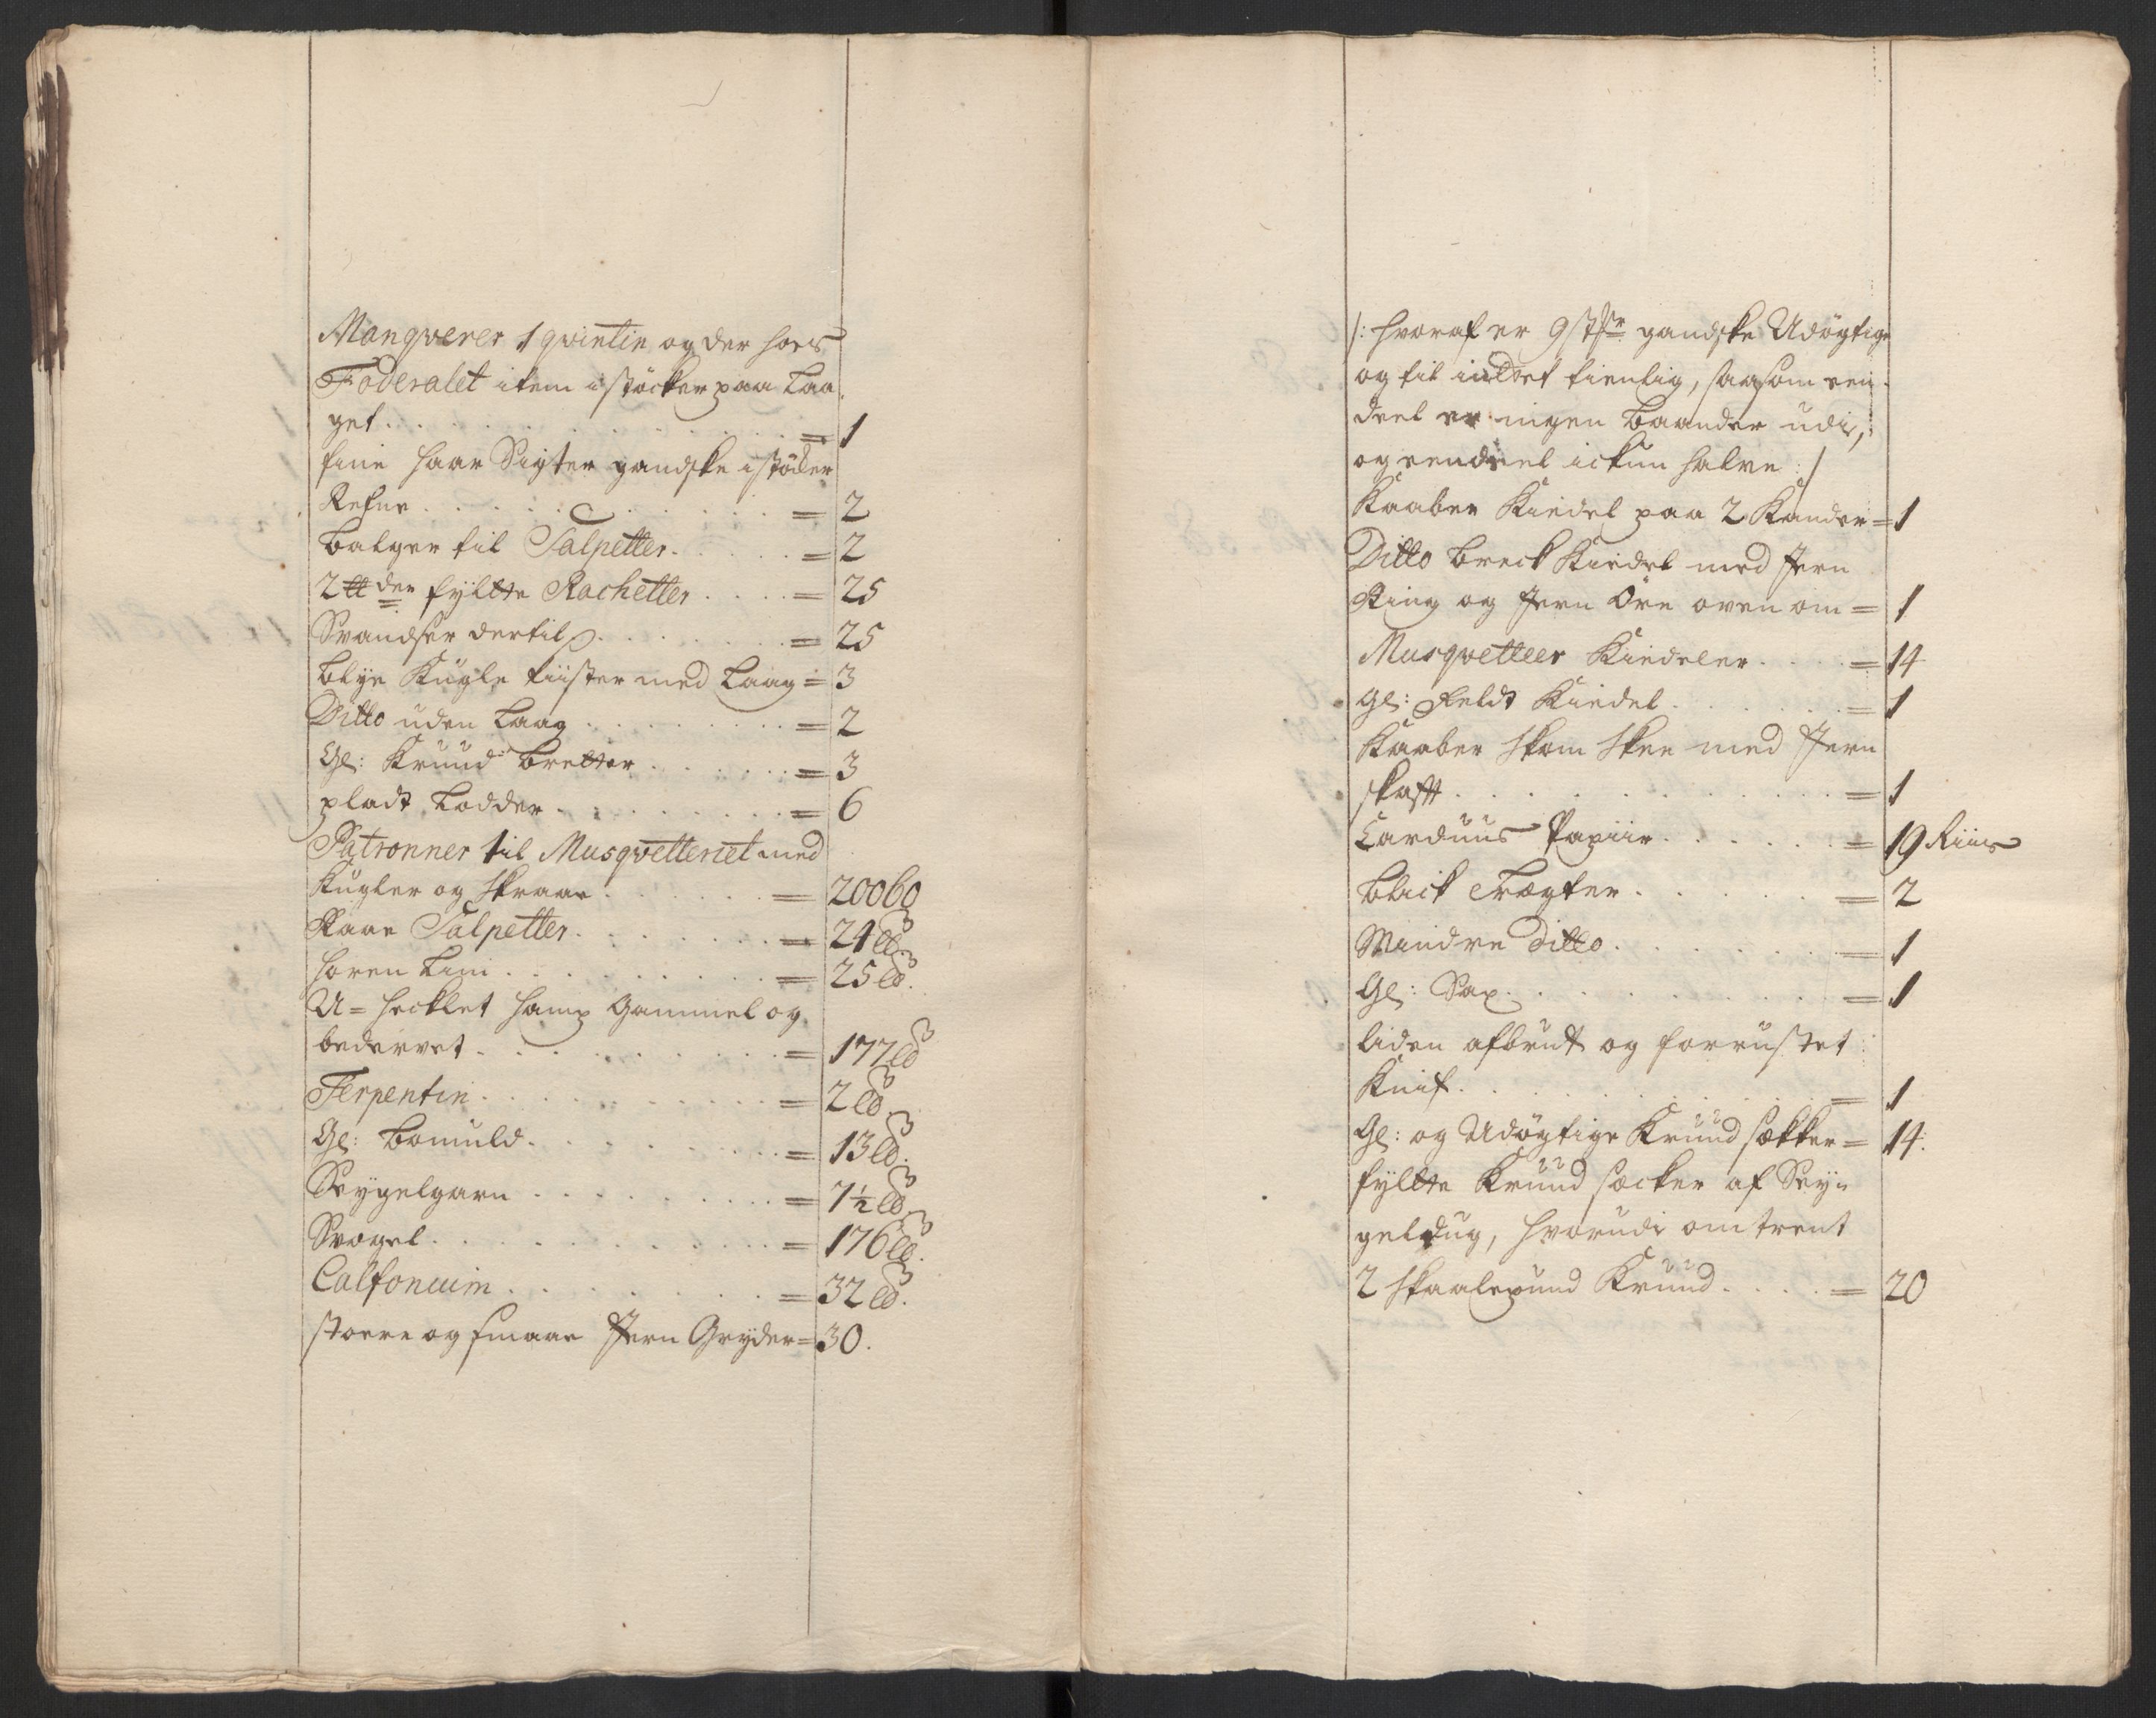 Manqverer 1 qvintin og der hoes
Foderalet item i støcker paa Laa
get . . . = 1
fine Haar Sigter gandske i støcker
Refne . . . = 2
Balger til Salpetter . . . = 2
2 ℔den fyldte Rachetter . . . = 25
Svandser dertil . . . = 25
Blye Kugle kiister med Laag = 3
Ditto uden Laag . . . = 2
Gl: Kruud Bretter . . . = 3
pladt Lodder . . . = 6
Patronner til Musqvetteriet med
Kugler og Skraae . . . = 20060
Raae Salpetter . . . = 24 ℔
Horen Liim . . . = 25 ℔.
U=Hecklet Hamp Gammel og
bedervet . . . = 177 ℔
Terpentin . . . = 2 ℔.
Gl: Bomuld . . . = 13 ℔.
Seygelgarn . . . = 7½ ℔.
Svogel . . . = 176 ℔.
Calfonium . . . = 32 ℔.
Stoere og smaae Jern Gryder = 30.
/: hvoraf er 9 stkr gandske Udøgtige
og til indtet tienlig, saasom een
deel er ingen Baander udi,
og eendeel ickun halve :/
Kaaber Kiedel paa 2 Kander = 1
Ditto Breck Kiedel med Jern
Ring og Jern Øre oven om = 1
Musqvetteer Kiedeler . . . = 14
Gl: Feldt Kiedel . . . = 1
Kaaber Skom Skee med Jern
skafft . . . = 1
Carduus Papiir . . . = 19 Riis
Blick Tragter . . . = 2
Mindre Ditto . . . = 1
Gl: Sax . . . = 1
Liden afbrudt og forrustet
Knif . . . = 1
Gl: og Udøgtige Kruud sækker = 14.
fyldte Kruud sæcker af Sey=
geldug, hvorudi omtrent
2 Skaalepund Kruud . . . = 20